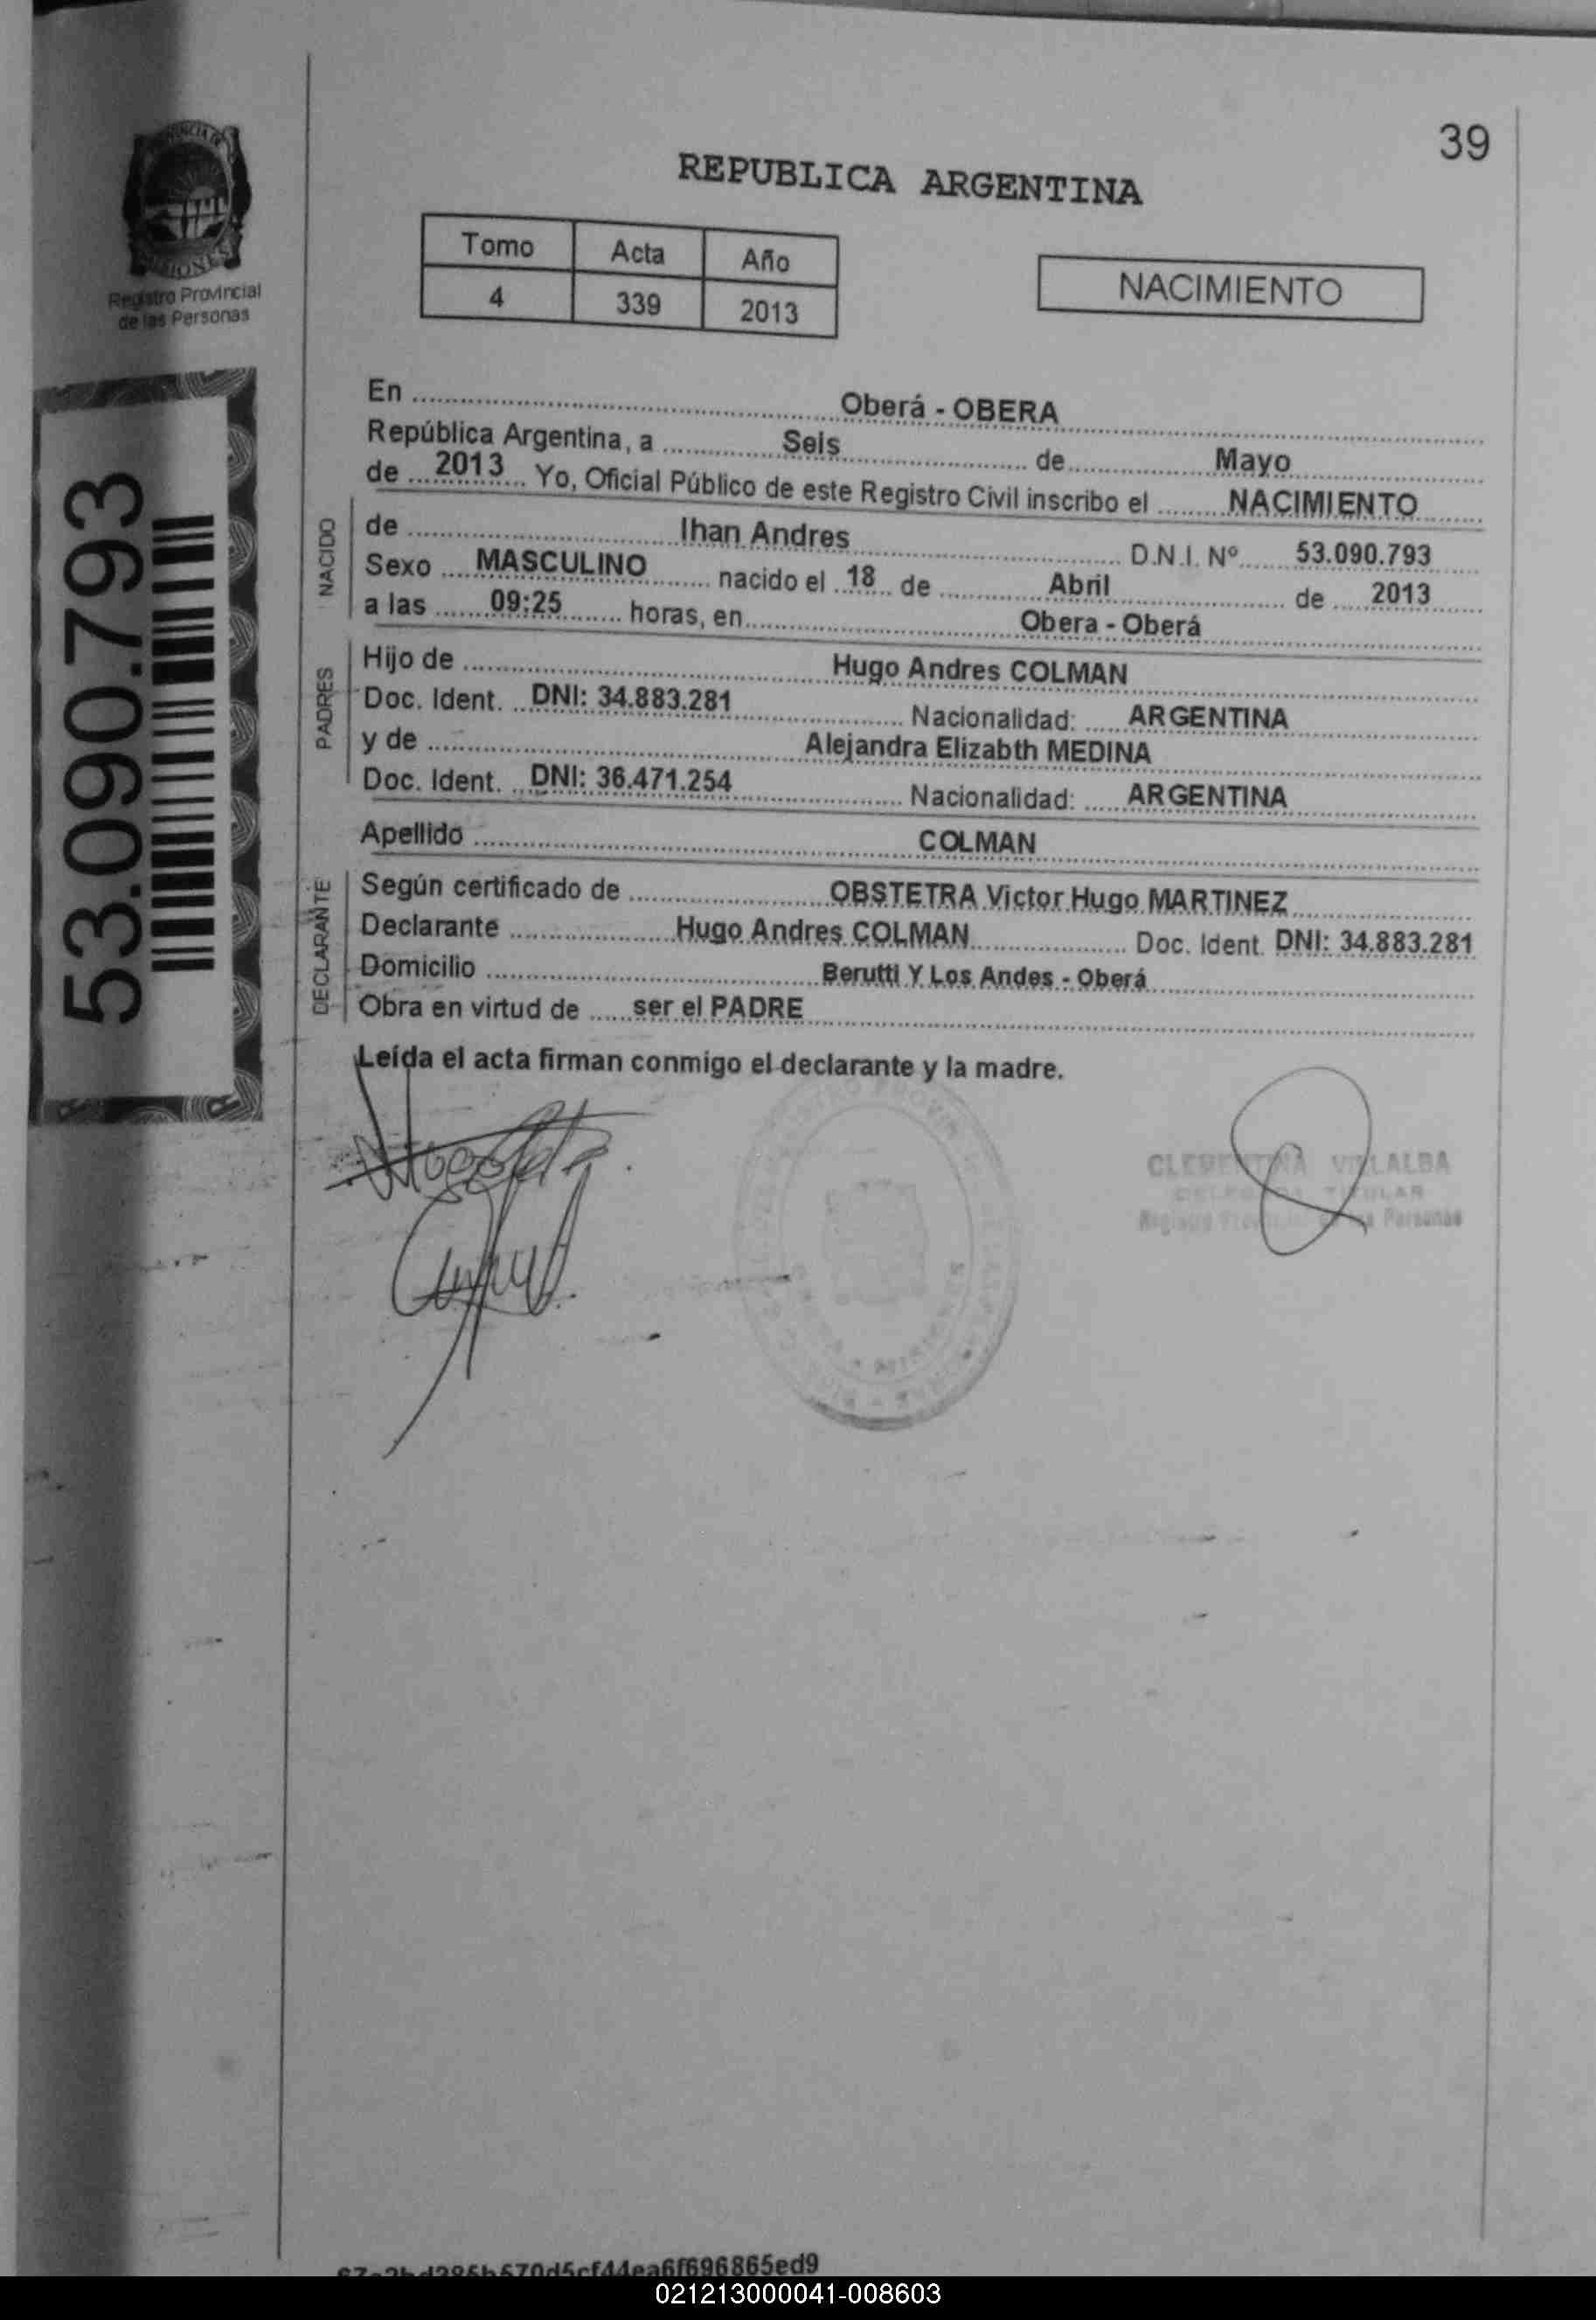 39
REPUBLICA ARGENTINA
Tomo Acta Año
4 339 2013
NACIMIENTO
Registro Provincial
de las Personas
53.090.793
En Oberá - OBERA
República Argentina, a Seis de Mayo
de 2013 Yo, Oficial Público de este Registro Civil inscribo el NACIMIENTO
NACIDO
de Ihan Andres D.N.I. Nº 53.090.793
Sexo MASCULINO nacido el 18 de Abril de 2013
a las 09:25 horas, en Obera - Oberá
PADRES
Hijo de Hugo Andres COLMAN
Doc. Ident. DNI: 34.883.281 Nacionalidad: ARGENTINA
y de Alejandra Elizabth MEDINA
Doc. Ident. DNI: 36.471.254 Nacionalidad: ARGENTINA
Apellido COLMAN
DECLARANTE
Según certificado de OBSTETRA Victor Hugo MARTINEZ
Declarante Hugo Andres COLMAN Doc. Ident. DNI: 34.883.281
Domicilio Berutti Y Los Andes - Oberá
Obra en virtud de ser el PADRE
Leída el acta firman conmigo el declarante y la madre.
CLEMENTINA VILLALBA
TITULAR
Personas
021213000041-008603